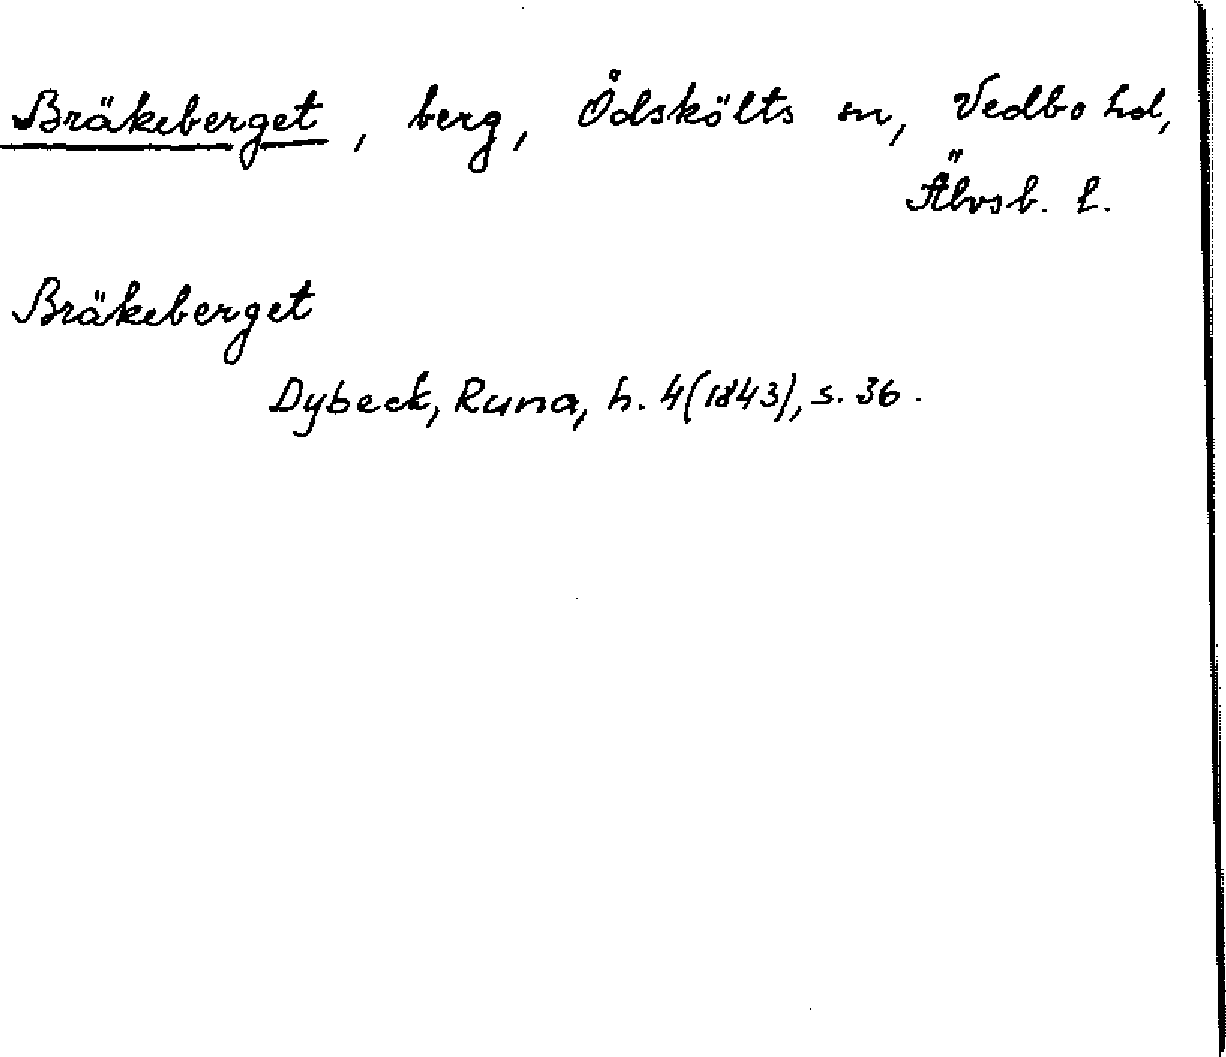 Bräkeberget, berg, Ödskölts sn, Vedbo hd,
Älvsb. l.
Bräkeberget
Dybeck, Runa, h. 4(1843), s. 36.